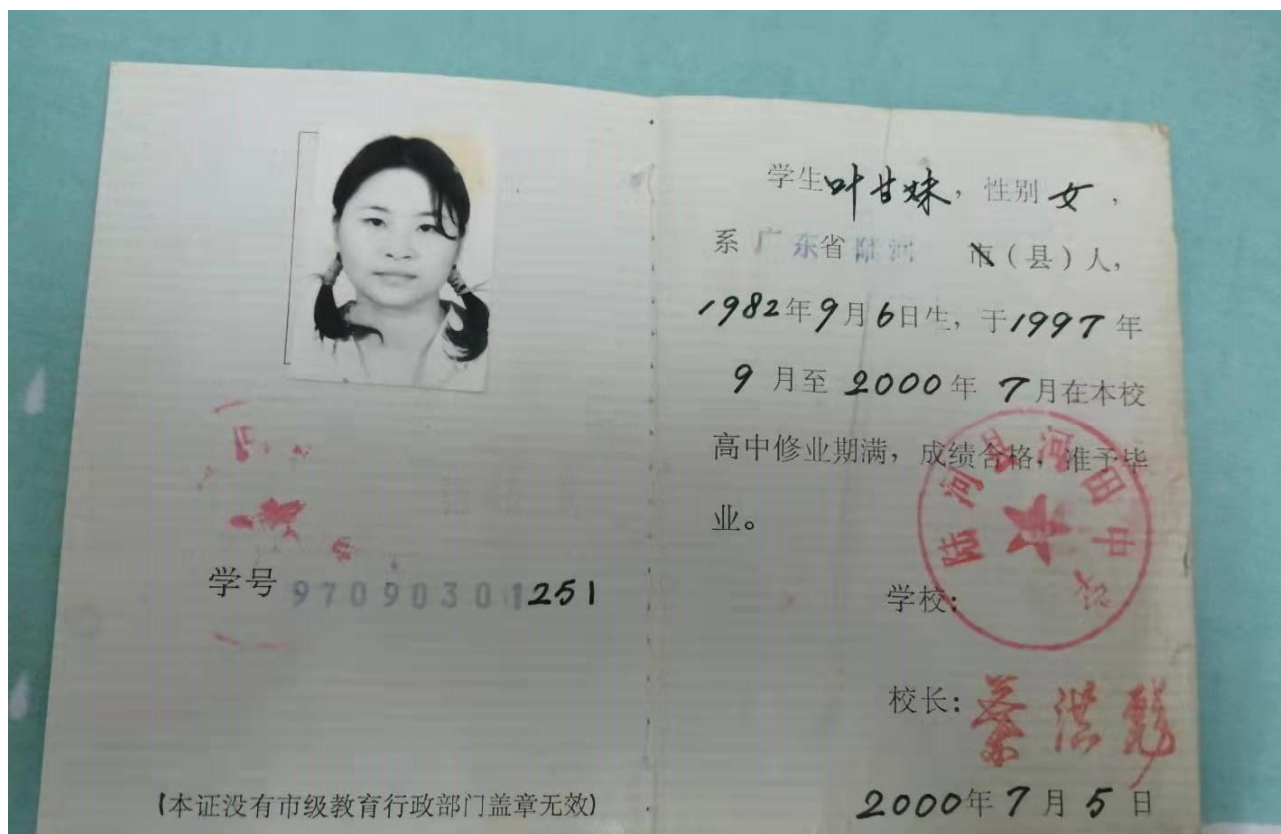 学号 97090301251
(本证没有市级教育行政部门盖章无效)
学生叶甘妹，性别女，
系广东省陆河 市(县)人，
1982年9月6日生，于1997年
9月至2000年7月在本校
高中修业期满，成绩合格，准予毕
业。
陆河县河田中学
学校：
校长：
2000年7月5日